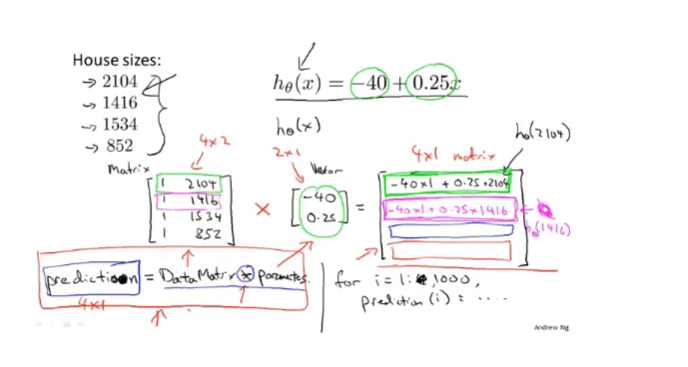 House sizes:
→ 2104
→ 1416
→ 1534
→ 852
hθ(x) = −40 + 0.25x
hθ(x)
hθ(2104)
4×2
2×1
4×1 matrix
Matrix
Vector
1 2104
1 1416
1 1534
1 852
×
−40
0.25
=
−40×1 + 0.25×2104
−40×1 + 0.25×1416
hθ(1416)
prediction = DataMatrix * parameters.
4×1
for i=1:1000,
prediction(i) = ....
Andrew Ng